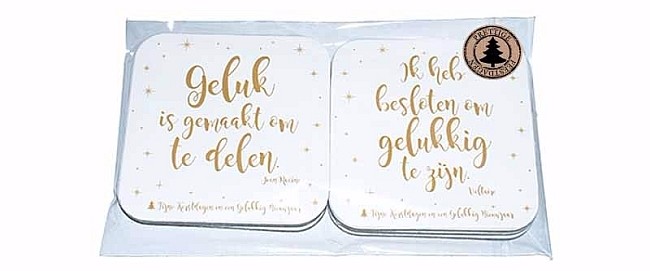 Geluk
is gemaakt om
te delen.
Jean Racine
Fijne Kerstdagen en een Gelukkig Nieuwjaar
Ik heb
besloten om
gelukkig
te zijn.
Voltaire
Fijne Kerstdagen en een Gelukkig Nieuwjaar
PRETTIGE
FEESTDAGEN